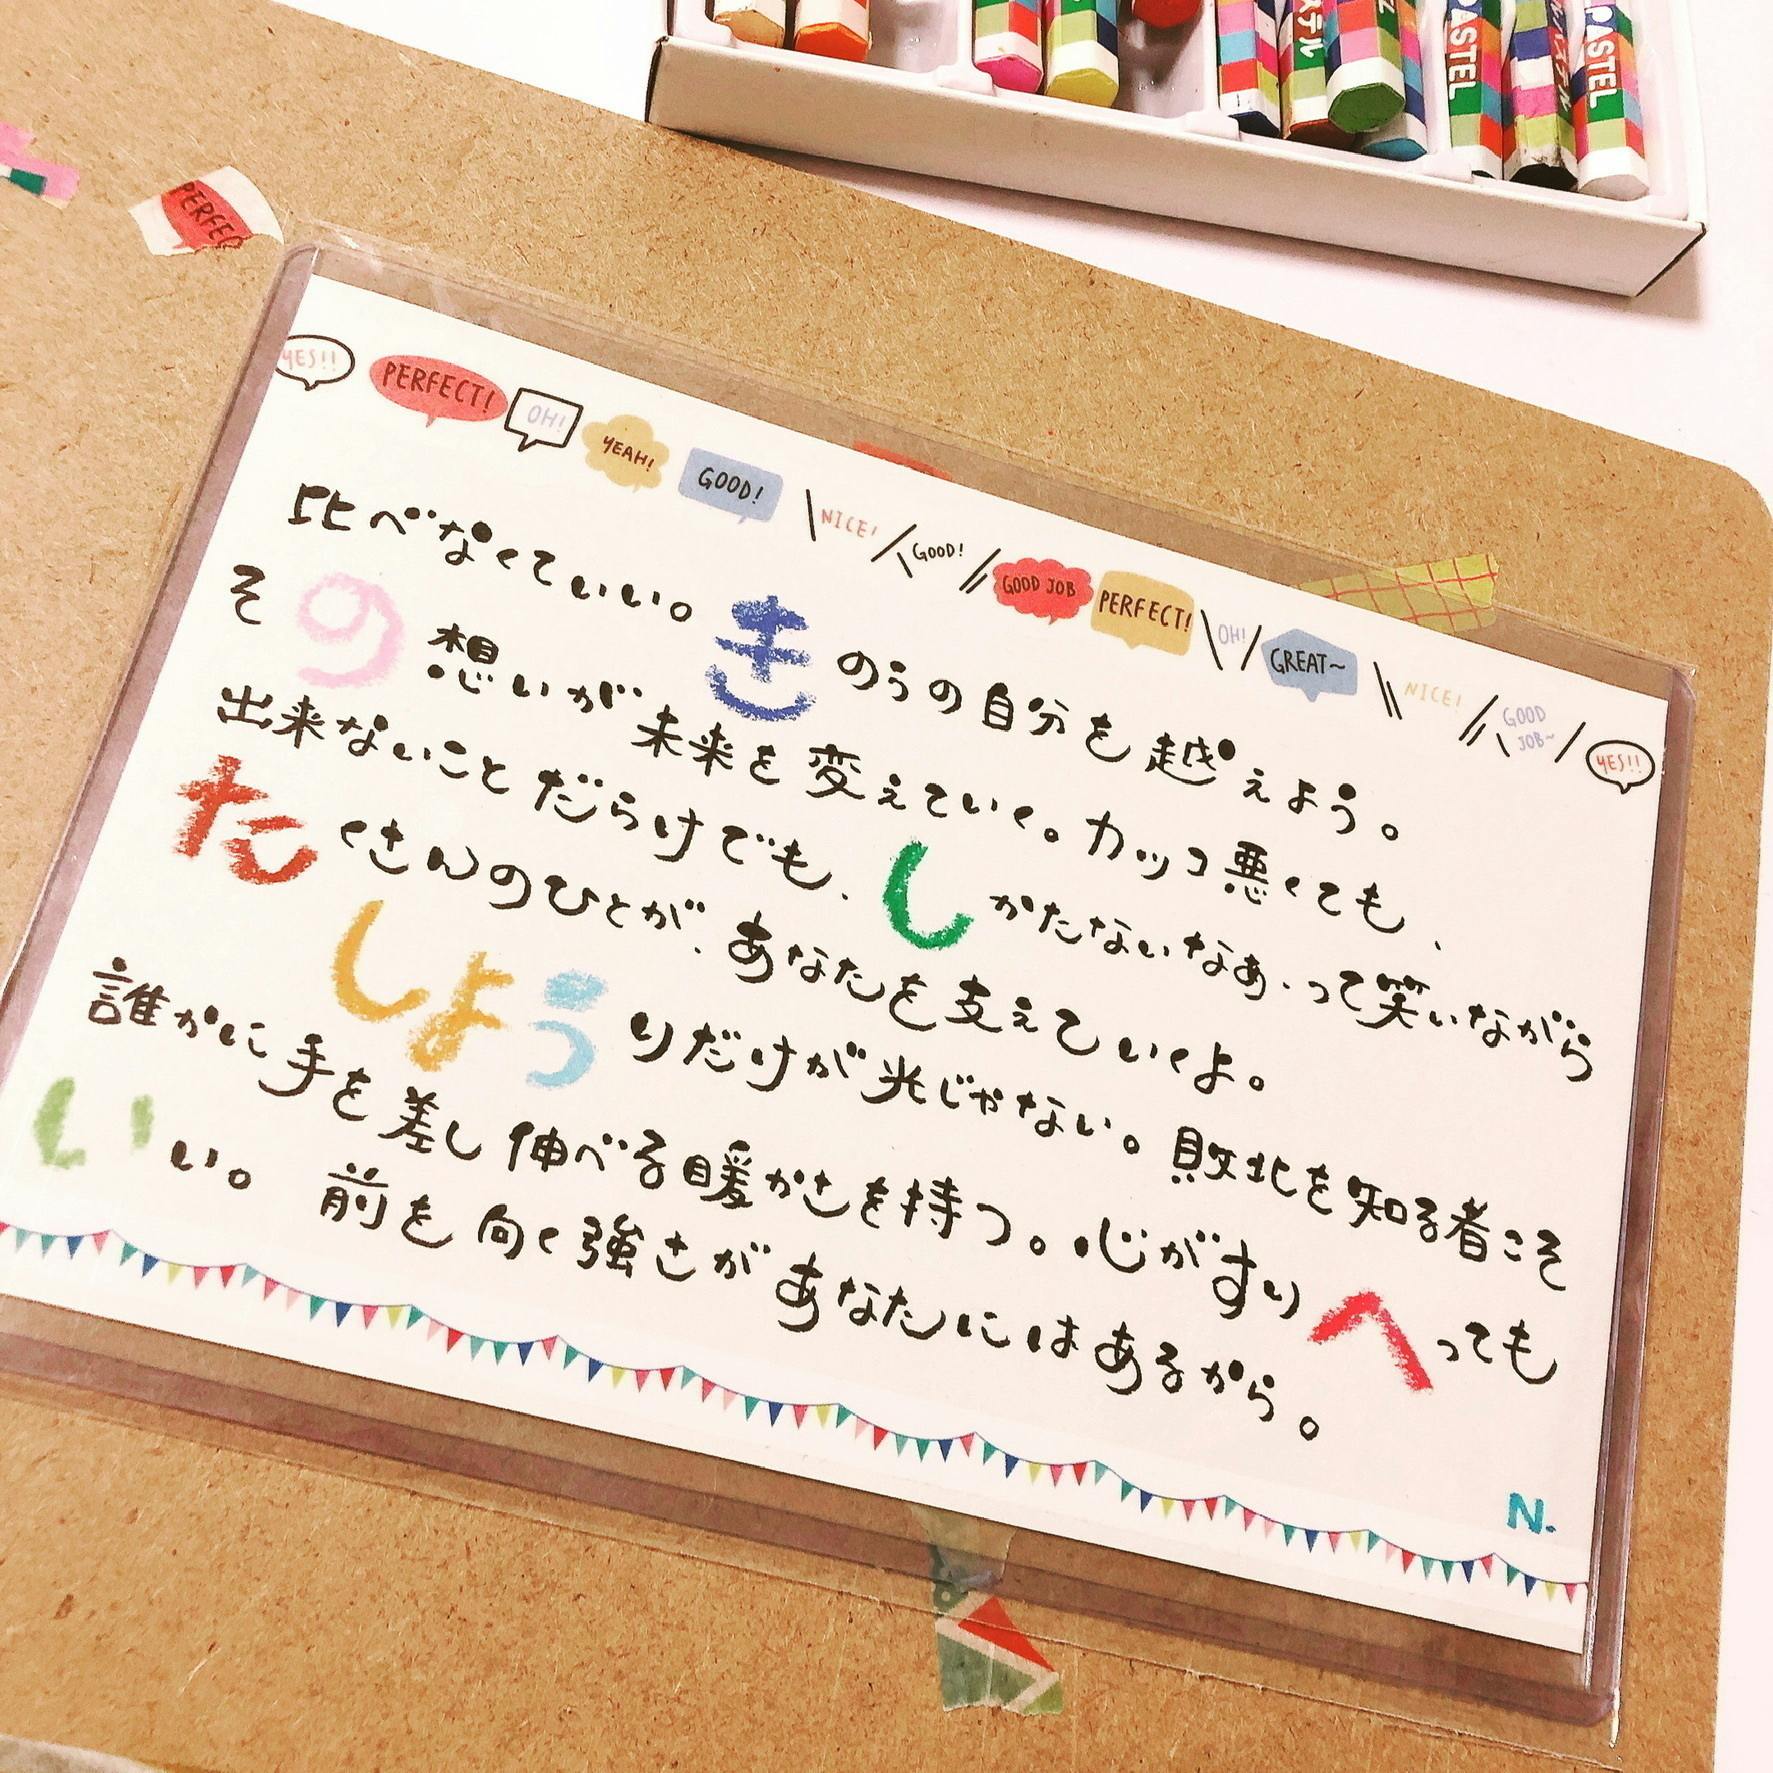 PASTEL
ステル
PASTEL
パステル
PERFEC
YES!! PERFECT! OH! YEAH! GOOD! NICE! GOOD! GOOD JOB PERFECT! OH! GREAT~ NICE! GOOD JOB~ YES!!
比べなくていい。きのうの自分を越えよう。
その想いが未来を変えていく。カッコ悪くても、
出来ないことだらけでも、しかたないなあ、って笑いながら
たくさんのひとが、あなたを支えていくよ。
しょうりだけが光じゃない。敗北を知る者こそ
誰かに手を差し伸べる暖かさを持つ。心がすりへっても
いい。前を向く強さがあなたにはあるから。
N.